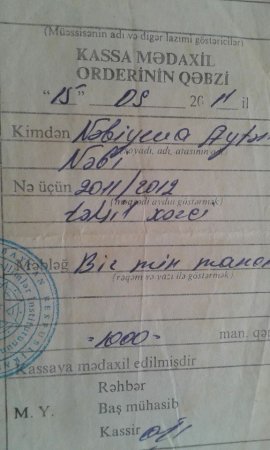 (Müəssisənin adı və digər lazımi göstəricilər)
KASSA MƏDAXİL
ORDERİNİN QƏBZİ
"15" 09 2011 il
Kimdən Nəbiyeva Aytən
Nəbi
(soyadı, adı, atasının adı)
Nə üçün 2011/2012
(məqsədi aydın göstərmək)
təhsil xərci
Məbləğ Bir min manat
(rəqəm və yazı ilə göstərmək)
=1000= man. qəp
Kassaya mədaxil edilmişdir
Rəhbər
M. Y. Baş mühasib
Kassir